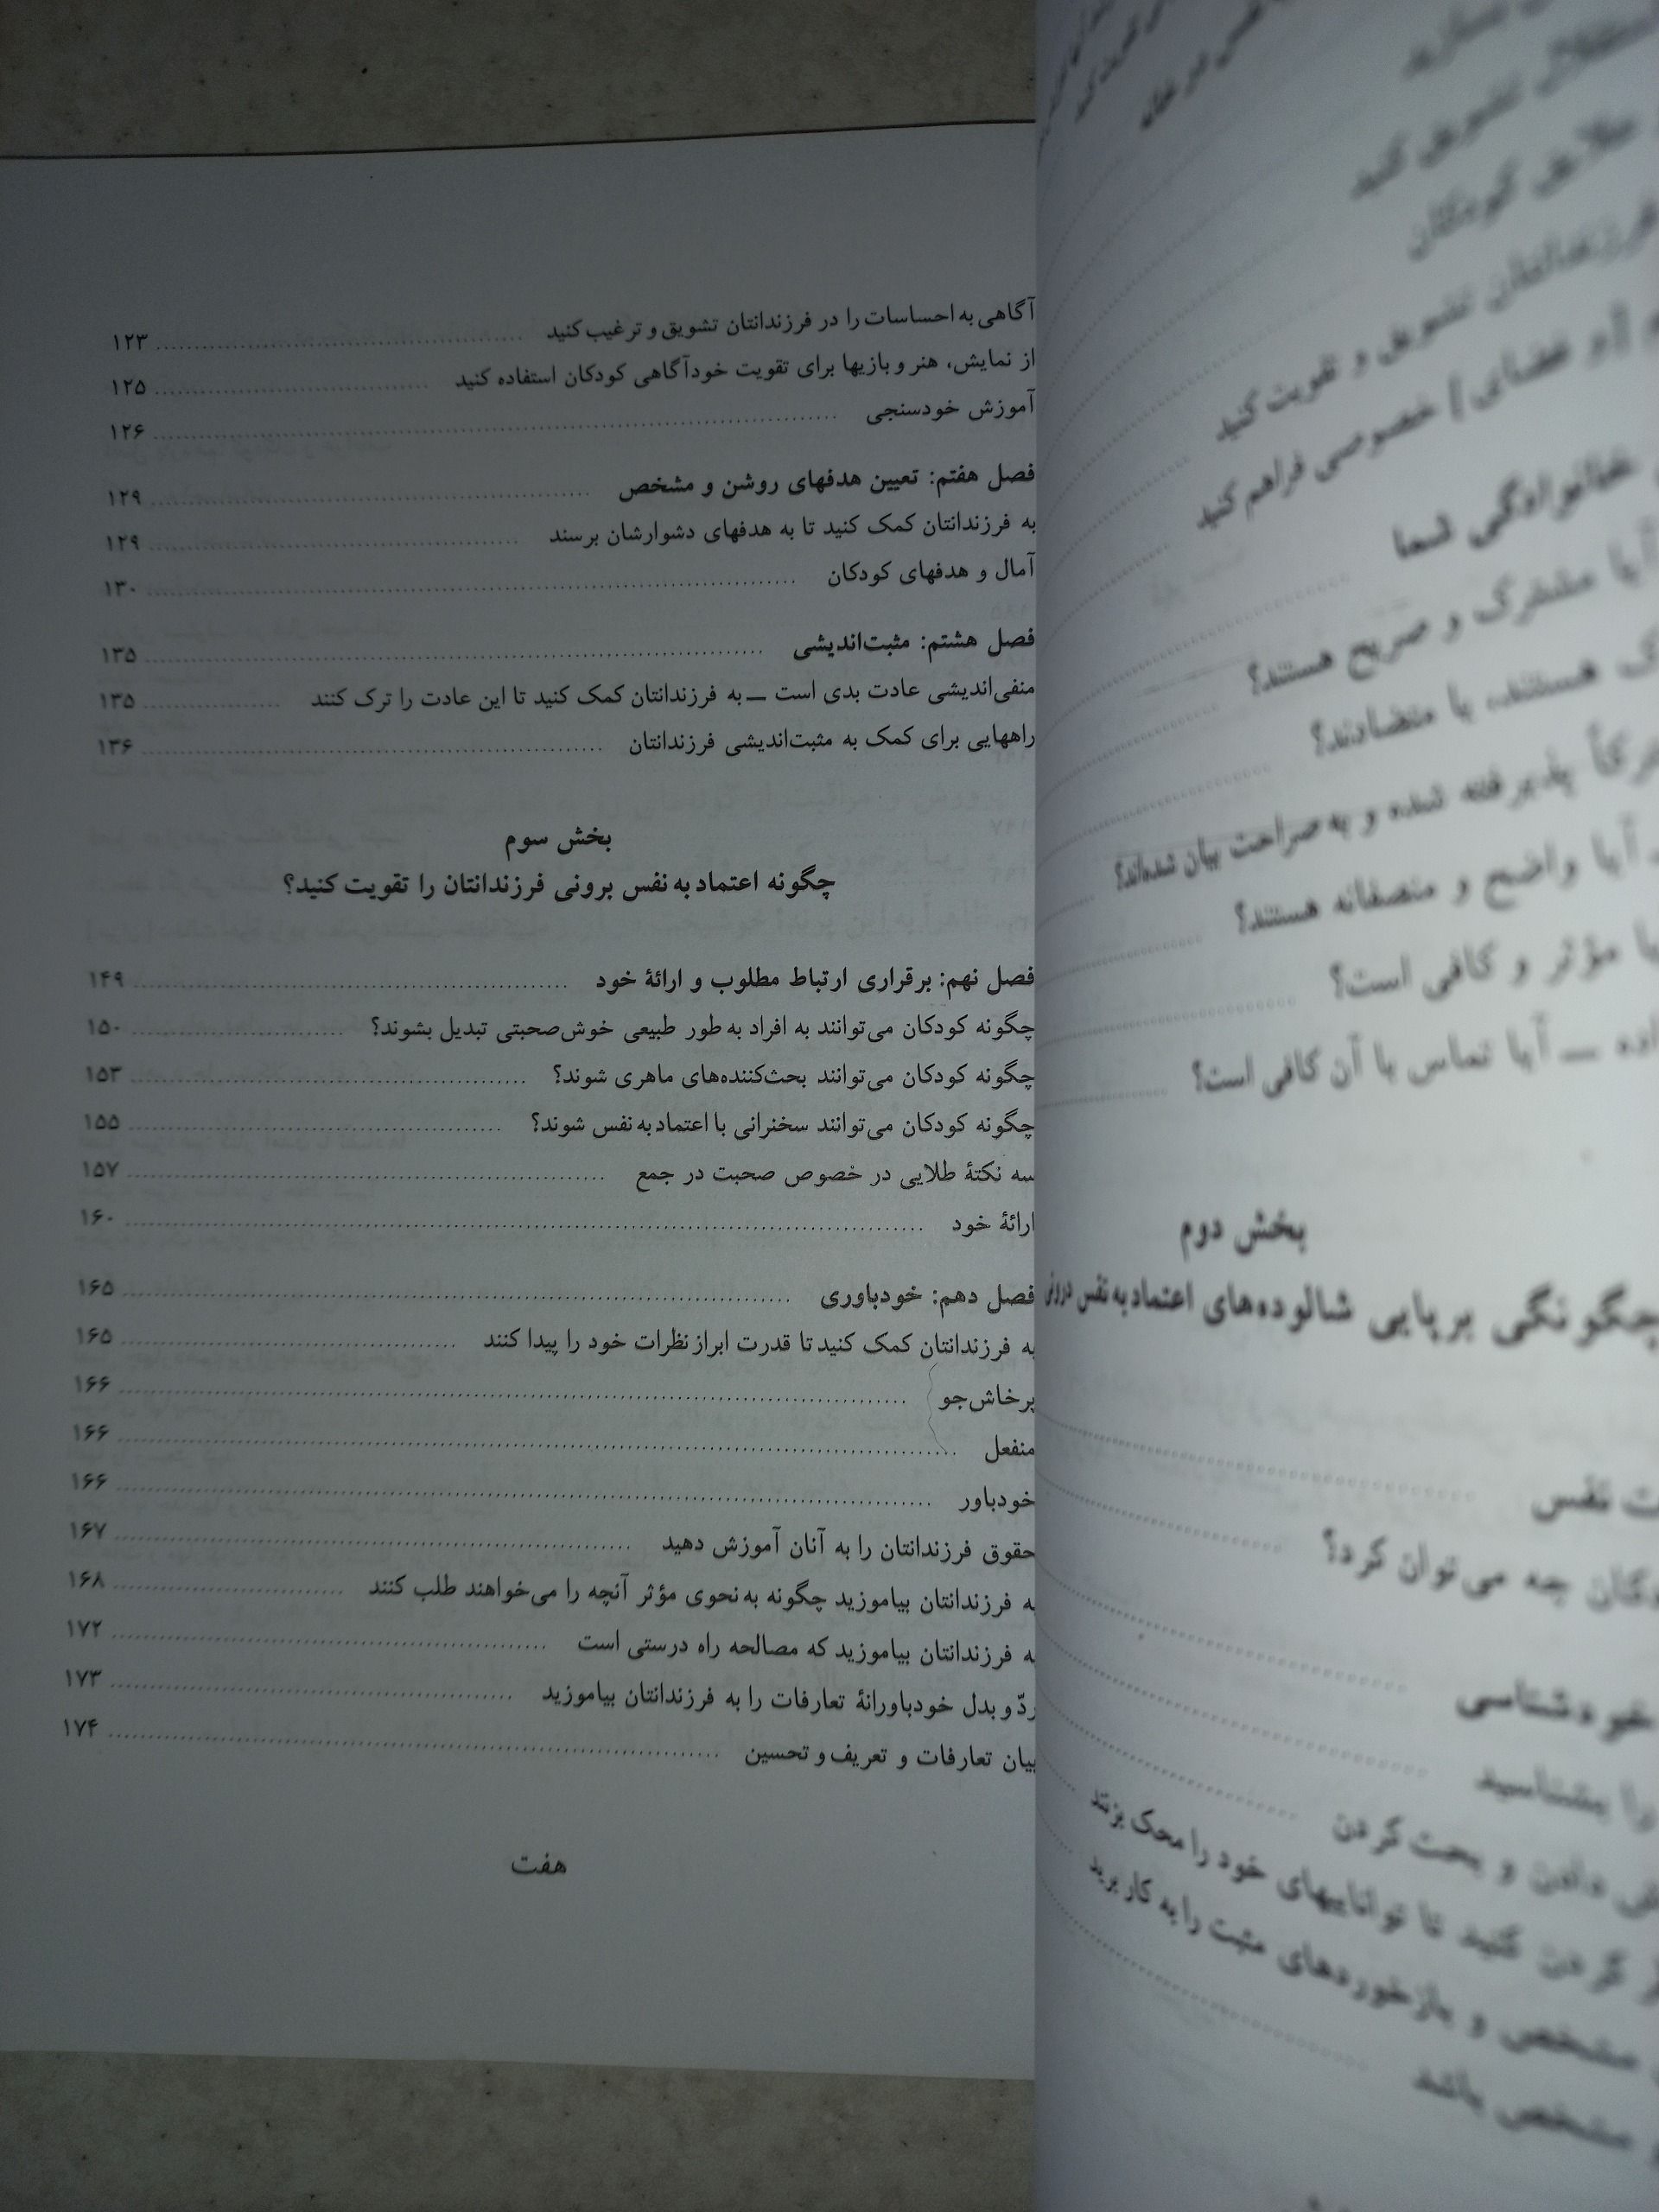 سازید
استقلال تشویق کنید
علایق کودکان
فرزندانتان تشویق و تقویت کنید
[و فضای] خصوصی فراهم کنید
خانوادگی شما
آیا مشترک و صریح هستند؟
هستند، یا متضادند؟
پذیرفته شده و به صراحت بیان شده‌اند؟
آیا واضح و منصفانه هستند؟
مؤثر و کافی است؟
ـــ آیا تماس با آن کافی است؟
بخش دوم
چگونگی برپایی شالوده‌های اعتماد به نفس درونی
نفس
چه می‌توان کرد؟
خودشناسی
را بشناسید
دادن و بحث کردن
کردن کنید تا تواناییهای خود را محک بزنند
مشخص و بازخوردهای مثبت را به کار برید
مشخص باشد
آگاهی به احساسات را در فرزندانتان تشویق و ترغیب کنید ۱۲۳
از نمایش، هنر و بازیها برای تقویت خودآگاهی کودکان استفاده کنید ۱۲۵
آموزش خودسنجی ۱۲۶
فصل هفتم: تعیین هدفهای روشن و مشخص ۱۲۹
به فرزندانتان کمک کنید تا به هدفهای دشوارشان برسند ۱۲۹
آمال و هدفهای کودکان ۱۳۰
فصل هشتم: مثبت‌اندیشی ۱۳۵
منفی‌اندیشی عادت بدی است ـــ به فرزندانتان کمک کنید تا این عادت را ترک کنند ۱۳۵
راههایی برای کمک به مثبت‌اندیشی فرزندانتان ۱۳۶
بخش سوم
چگونه اعتماد به نفس برونی فرزندانتان را تقویت کنید؟
فصل نهم: برقراری ارتباط مطلوب و ارائهٔ خود ۱۴۹
چگونه کودکان می‌توانند به افراد به طور طبیعی خوش‌صحبتی تبدیل بشوند؟ ۱۵۰
چگونه کودکان می‌توانند بحث‌کننده‌های ماهری شوند؟ ۱۵۳
چگونه کودکان می‌توانند سخنرانی با اعتماد به نفس شوند؟ ۱۵۵
سه نکتهٔ طلایی در خصوص صحبت در جمع ۱۵۷
ارائهٔ خود ۱۶۰
فصل دهم: خودباوری ۱۶۵
به فرزندانتان کمک کنید تا قدرت ابراز نظرات خود را پیدا کنند ۱۶۵
پرخاش‌جو ۱۶۶
منفعل ۱۶۶
خودباور ۱۶۶
حقوق فرزندانتان را به آنان آموزش دهید ۱۶۷
به فرزندانتان بیاموزید چگونه به نحوی مؤثر آنچه را می‌خواهند طلب کنند ۱۶۸
به فرزندانتان بیاموزید که مصالحه راه درستی است ۱۷۲
ردّ و بدل خودباورانهٔ تعارفات را به فرزندانتان بیاموزید ۱۷۳
بیان تعارفات و تعریف و تحسین ۱۷۴
هفت